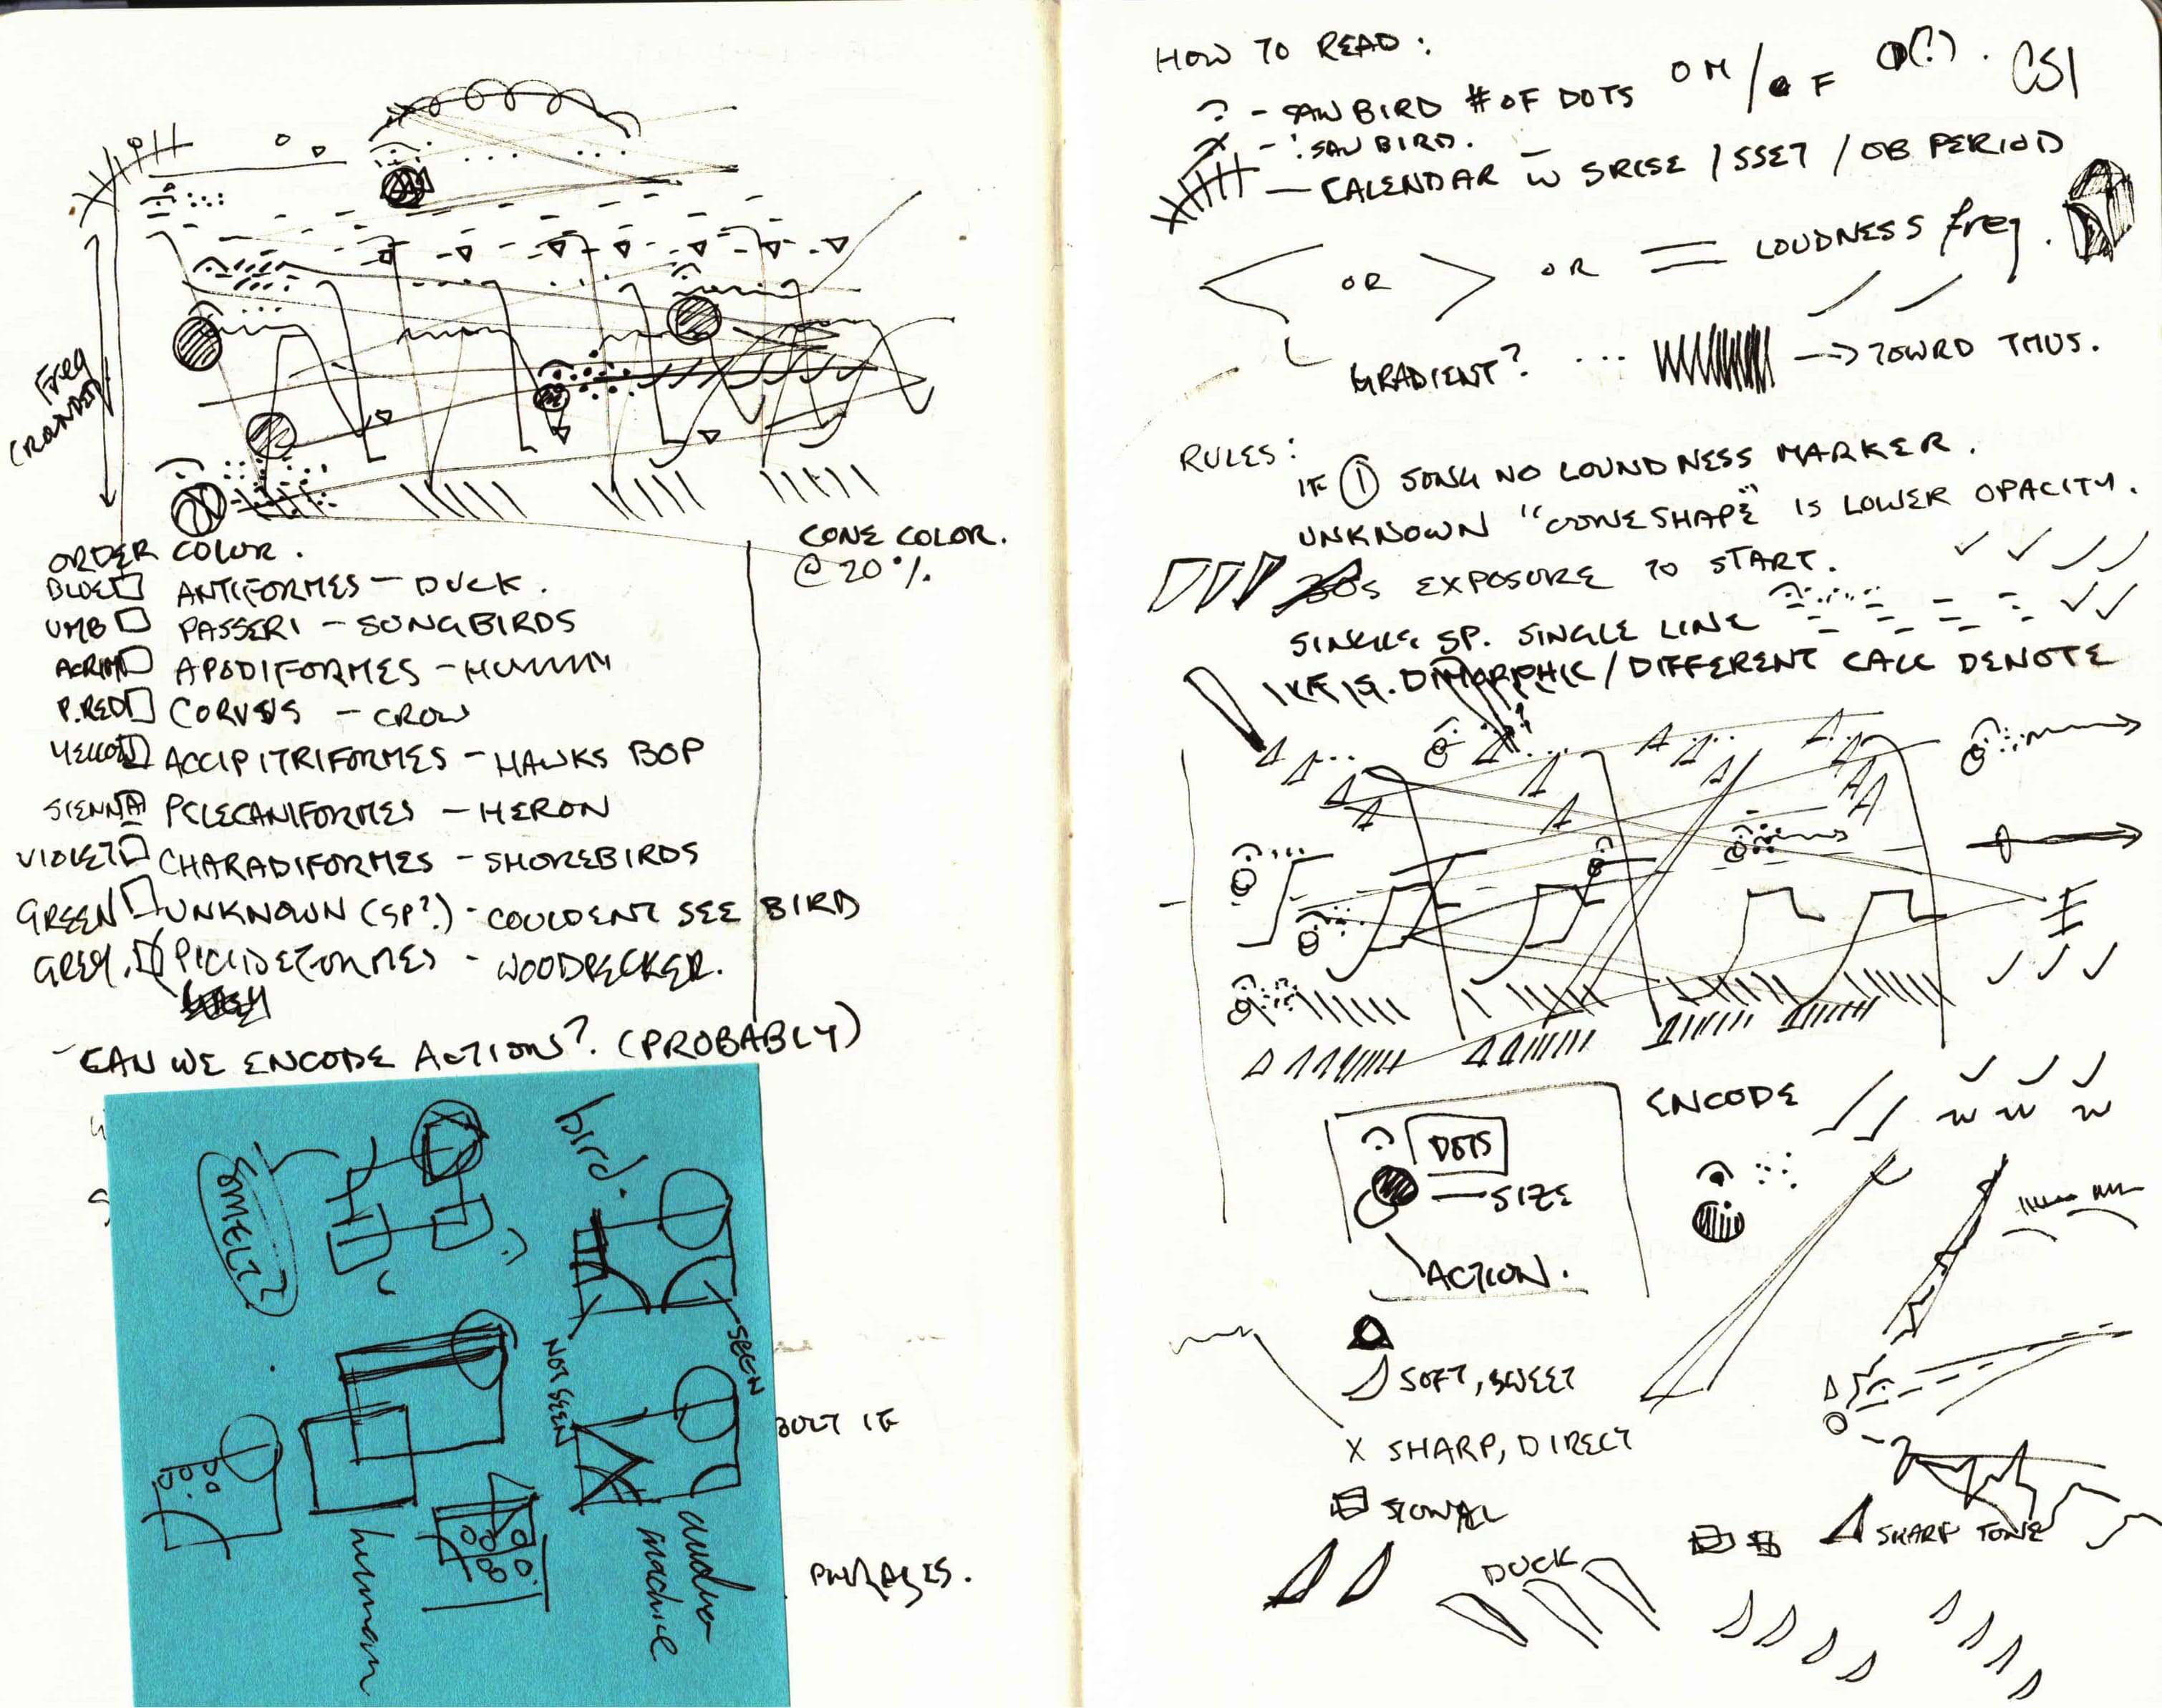 Freq
(RANDED)
ORDER COLOR.
CONE COLOR.
@ 20%.
BLUE ANTIFORMES - DUCK.
UMB PASSERI - SONGBIRDS
APODIFORMES - HUMMY
P.RED CORVUS - CROW
YELLOW ACCIPITRIFORMES - HAWKS BOP
SIENNA PELECANIFORMES - HERON
VIOLET CHARADIFORMES - SHOREBIRDS
GREEN UNKNOWN (SP?) - COULDENT SEE BIRD
GREY. - WOODPECKER.
- CAN WE ENCODE ACTIONS? (PROBABLY)
bird.
SMELT?
SEEN
NOT SEEN
audio
machine
human
BOLT IF
PHRASES.
HOW TO READ:
- SAW BIRD # OF DOTS O M / F (?). CS1
- !SAW BIRD.
- CALENDAR W SRISE / SSET / OB PERIOD
< OR > OR = LOUDNESS freq.
GRADIENT? ... → TOWRD THUS.
RULES:
IF ① SONG NO LOUNDNESS MARKER.
UNKNOWN "CONESHAPE" IS LOWER OPACITY.
EXPOSURE TO START.
SINGLE SP. SINGLE LINE
DIMORPHIC / DIFFERENT CALL DENOTE
ENCODE
DOTS
- SIZE
ACTION.
SOFT, SWEET
X SHARP, DIRECT
SHARP TONE
DUCK